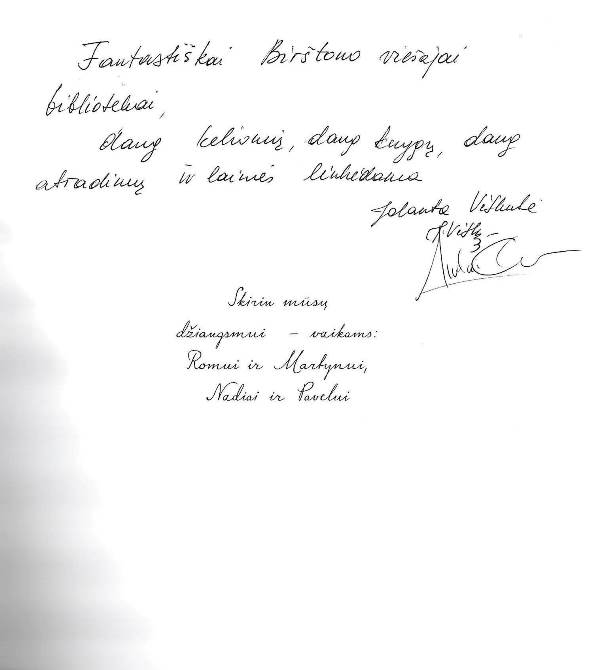 Fantastiškai Birštono viešajai
bibliotekai,
daug kelionių, daug knygų, daug
atradimų ir laimės linkėdama
Jolanta
Skiriu mūsų
džiaugsmui - vaikams:
Romui ir Martynui,
Nadiai ir Pavelui